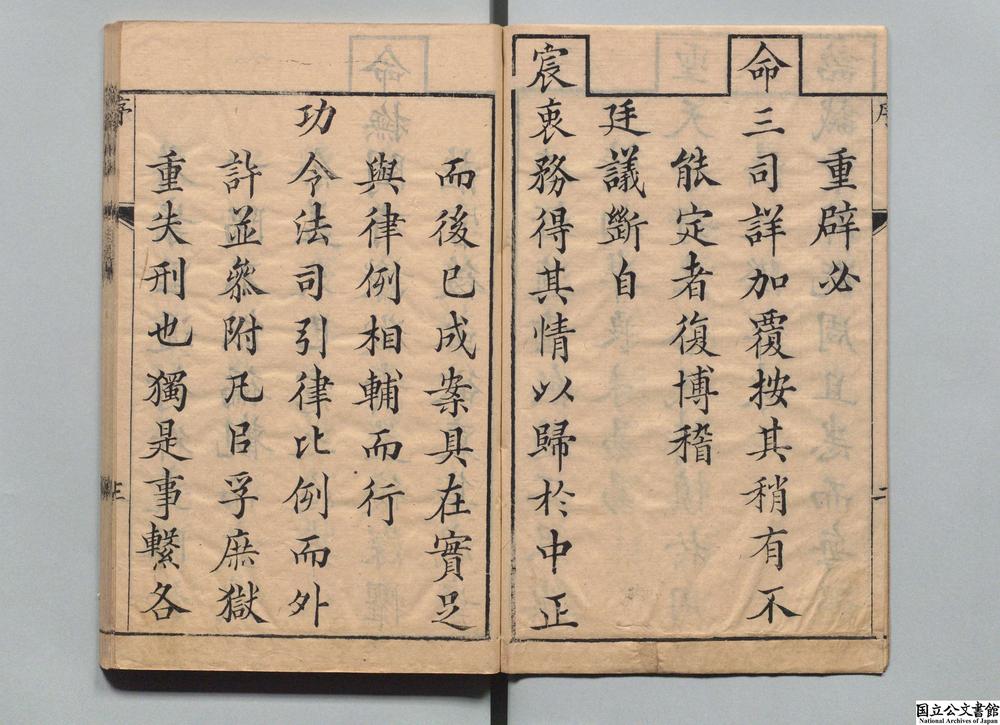 重辟必
命三司詳加覆按其稍有不
能定者復博稽
廷議斷自
宸衷務得其情以歸於中正
而後已成案具在實足
與律例相輔而行
功令法司引律比例而外
許並叅附凡㠯孚庶獄
重失刑也獨是事繫各
序
二
序
三
国立公文書館
National Archives of Japan